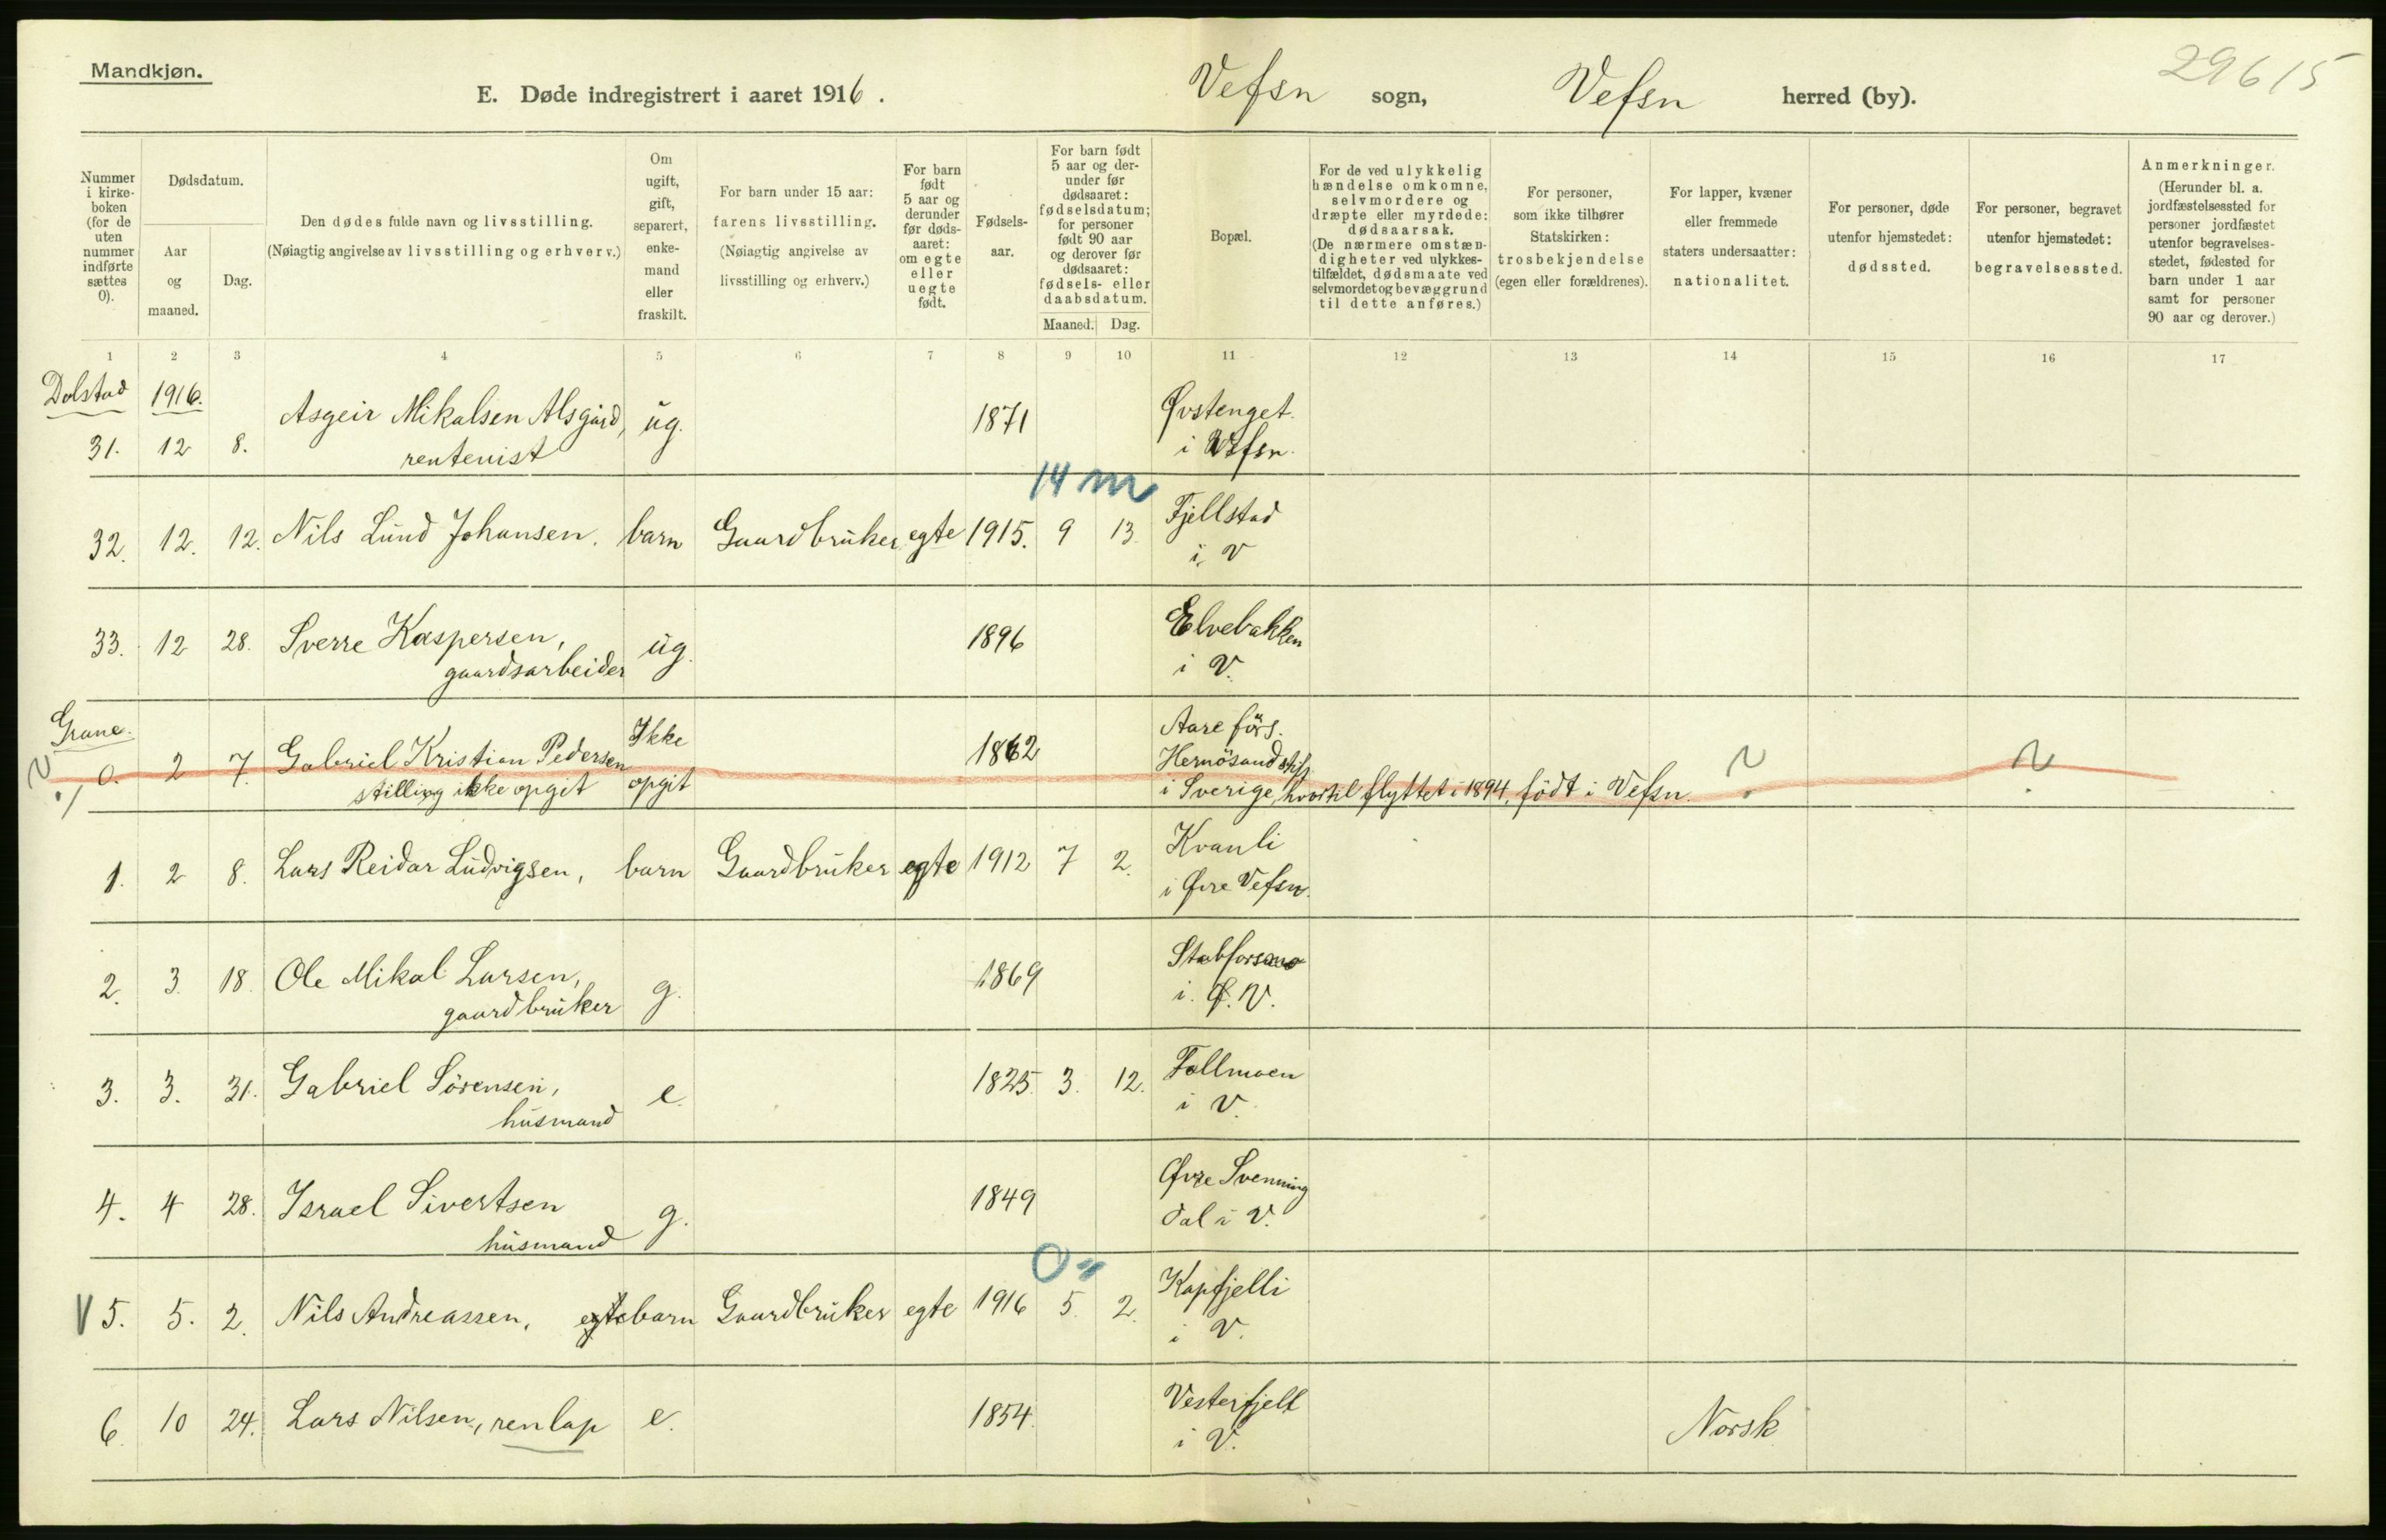 Mandkjøn.
E. Døde indregistrert i aaret 1916. Vefsn sogn, Vefsn herred (by). 29615
Nummer i kirkeboken (for de uten nummer indførte sættes 0).
Dødsdatum.
Aar og maaned.
Dag.
Den dødes fulde navn og livsstilling.
(Nøiagtig angivelse av livsstilling og erhverv.)
Om ugift, gift, separert, enkemand eller fraskilt.
For barn under 15 aar: farens livsstilling. (Nøiagtig angivelse av livsstilling og erhverv.)
For barn født 5 aar og derunder før dødsaaret: om egte eller uegte født.
Fødselsaar.
For barn født 5 aar og derunder før dødsaaret: fødselsdatum; for personer født 90 aar og derover før dødsaaret: fødsels- eller daabsdatum.
Maaned. Dag.
Bopæl.
For de ved ulykkelig hændelse omkomne, selvmordere og dræpte eller myrdede: dødsaarsak. (De nærmere omstændigheter ved ulykkestilfældet, dødsmaate ved selvmordet og bevæggrund til dette anføres.)
For personer, som ikke tilhører Statskirken: trosbekjendelse (egen eller forældrenes).
For lapper, kvæner eller fremmede staters undersaatter: nationalitet.
For personer, døde utenfor hjemstedet: dødssted.
For personer, begravet utenfor hjemstedet: begravelsessted.
Anmerkninger. (Herunder bl. a. jordfæstelsessted for personer jordfæstet utenfor begravelsesstedet, fødested for barn under 1 aar samt for personer 90 aar og derover.)
1 2 3 4 5 6 7 8 9 10 11 12 13 14 15 16 17
Dolstad 1916.
31. 12 8. Asgeir Mikalsen Alsgård, rentenist ug. 1871 Øvstenget i Vefsn.
14 m
32. 12. 12. Nils Lund Johansen. barn Gaardbruker egte 1915. 9 13. Fjellstad i V
33. 12 28. Sverre Kaspersen, gaardsarbeider ug. 1896 Elvebakken i V.
Grane.
0. 2 7. Gabriel Kristian Pedersen stilling ikke opgit Ikke opgit 1862 Aare förs. Hernösand stift i Sverige, hvortil flyttet i 1894, født i Vefsn.
1. 2 8. Lars Reidar Ludvigsen, barn Gaardbruker egte 1912 7 2. Kvanli i Øvre Vefsn.
2. 3 18. Ole Mikal Larsen, gaardbruker g. 1869 Stabforsmo i Ø.V.
3. 3. 31. Gabriel Sörensen, husmand e. 1825 3. 12. Fallmoen i V.
4. 4 28. Israel Sivertsen husmand g. 1849 Øvre Svenningdal i V.
5. 5. 2. Nils Andreassen, egte barn Gaardbruker egte 1916 5. 2. Kapfjelli i V.
6. 10 24. Lars Nilsen, renlap e. 1854. Vesterfjell i V. Norsk